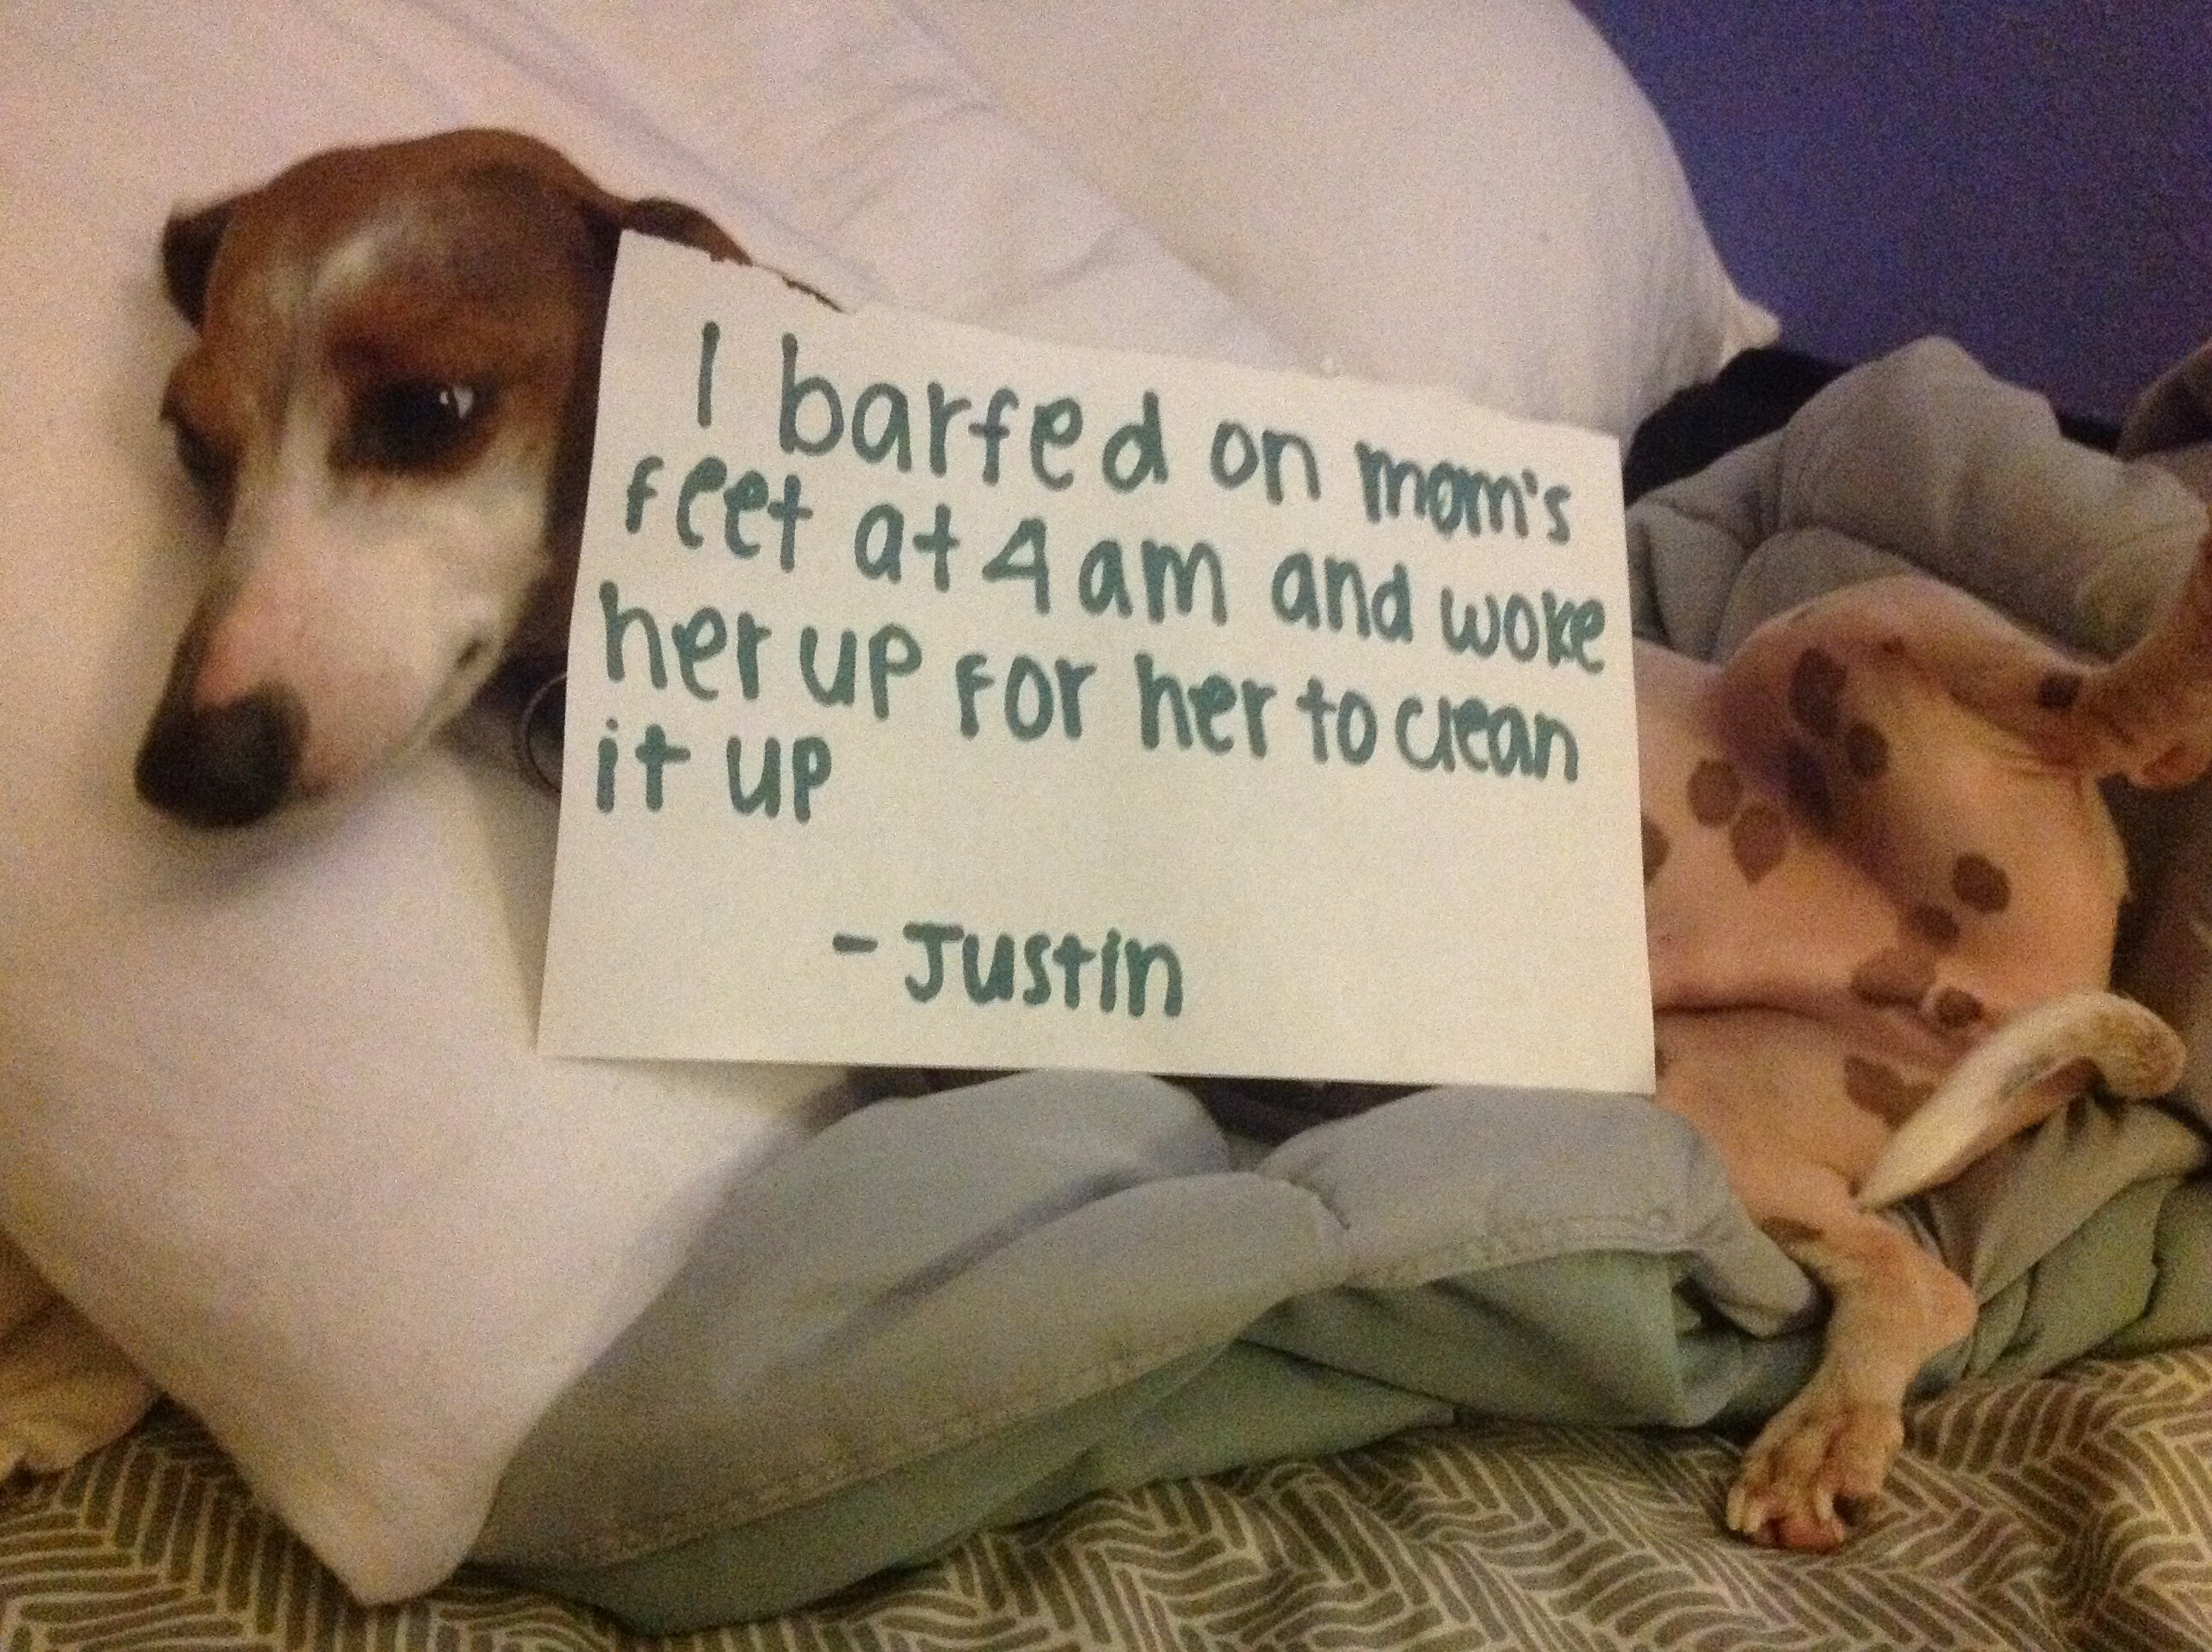 I barfed on mom's
feet at 4 am and woke
her up for her to clean
it up
- Justin